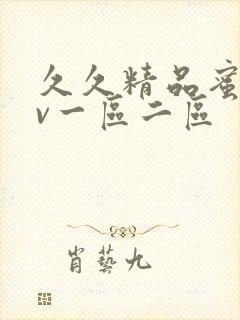 久久精品蜜
v一區二區
肖藝九